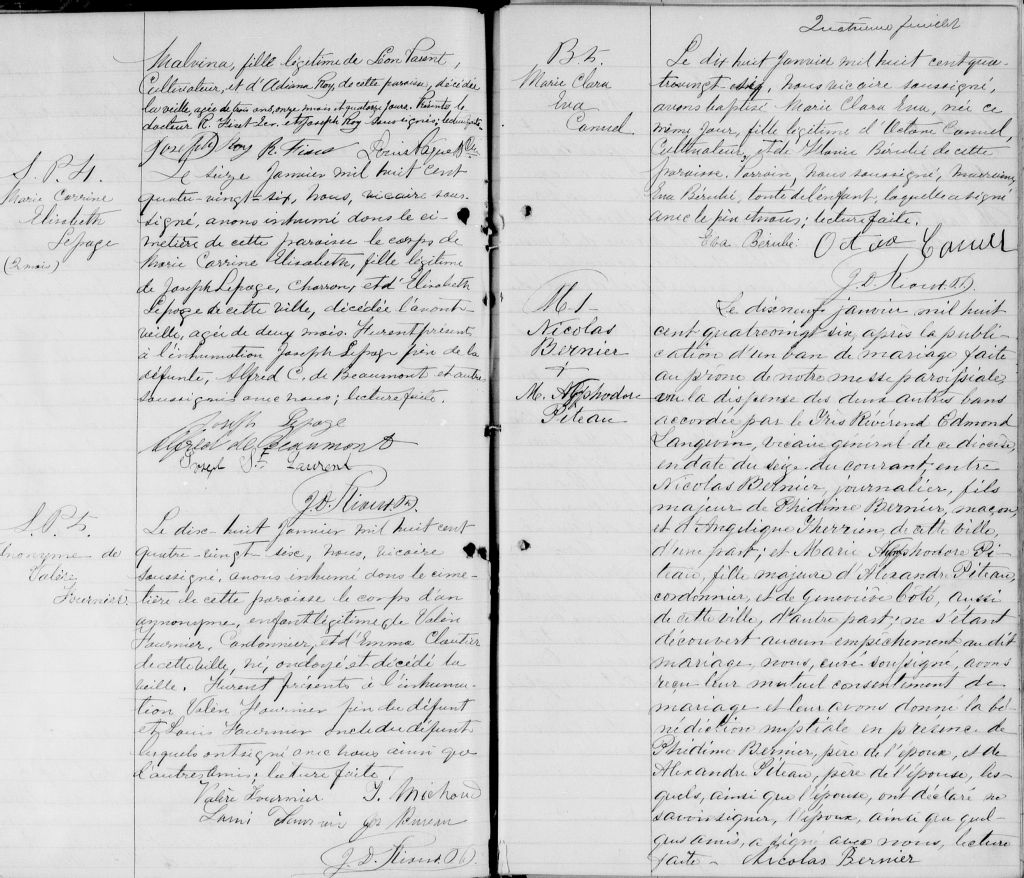 Malvina, fille légitime de Léon Parent,
Cultivateur, et d'Adiana Roy, de cette paroisse, décédée
la veille, agée de trois ans, onze mois et quatorze jours. Présents, le
docteur R. Fiset Ier. et Joseph Roy soussignés; lecture faite.
Joseph Roy R. Fiset
S. P. 4.
Marie Corrine
Elisabeth
Lepage
(2 mois)
Le seize Janvier mil huit cent
quatre-vingt-six, nous, vicaire sous-
signé, avons inhumé dans le ci-
metière de cette paroisse le corps de
Marie Corrine Elisabeth, fille légitime
de Joseph Lepage, Charron, et d'Elisabeth
Lepage de cette ville, décédée l'avant-
veille, agée de deux mois. Furent présents
à l'inhumation Joseph Lepage père de la
défunte, Alfred C. de Beaumont et autre
soussignés avec nous; lecture faite.
Joseph Lepage
Alfred de Beaumont
Joseph St. Laurent
J. D. Rioux Ptr.
S. P. 5.
Anonyme de
Valère
Fournier
Le dix-huit Janvier mil huit cent
quatre-vingt-six, nous, vicaire
soussigné, avons inhumé dans le cime-
tière de cette paroisse le corps d'un
annonyme, enfant légitime de Valère
Fournier, Cordonnier, et d'Emma Cloutier
de cette ville, né, ondoyé et décédé la
veille. Furent présents à l'inhuma-
tion Valère Fournier père du défunt
et Louis Fournier oncle du défunt
lesquels ont signé avec nous ainsi que
l'autre amis; lecture faite.
Valère Fournier J. Michaud
Fournier Bureau
J. D. Rioux Ptr.
Quatrième feuillet
B 5.
Marie Clara
Eva
Canuel
Le dix huit Janvier mil huit cent qua-
trevingt six, Nous vicaire soussigné,
avons baptisé Marie Clara Eva, née ce
même jour, fille légitime d'Octave Canuel,
Cultivateur, et de Bérubé de cette
paroisse, Parrain, nous soussigné, marraine,
Eva Bérubé, tante de l'enfant, laquelle a signé
avec le père & nous; lecture faite.
Eva Bérubé Octave Canuel
J. D. Rioux Ptr.
M 1
Nicolas
Bernier
+
M. Adolphodore
Piteau
Le dix neuf janvier mil huit
cent quatrevingt six, après la publi-
cation d'un ban de mariage faite
au prône de notre messe paroissiale,
vu la dispense des deux autres bans
accordée par le Très Révérend Edmond
Langevin, vicaire général de ce diocèse,
en date du seize du courant, entre
Nicolas Bernier, journalier, fils
majeur de Phidime Bernier, maçon,
et d'Angélique Therrien, de cette ville,
d'une part; et Marie Pi-
teau, fille majeure d'Alexandre Piteau,
cordonnier, et de Geneviève Coté, aussi
de cette ville, d'autre part; ne s'étant
découvert aucun empêchement au dit
mariage, nous, curé soussigné, avons
reçu leur mutuel consentement de
mariage et leur avons donné la bé-
nédiction nuptiale en présence de
Phidime Bernier, père de l'époux, et de
Alexandre Piteau, père de l'épouse, les-
quels, ainsi que l'épouse, ont déclaré ne
savoir signer, l'époux, ainsi que quel-
ques amis, a signé avec nous, lecture
faite - Nicolas Bernier